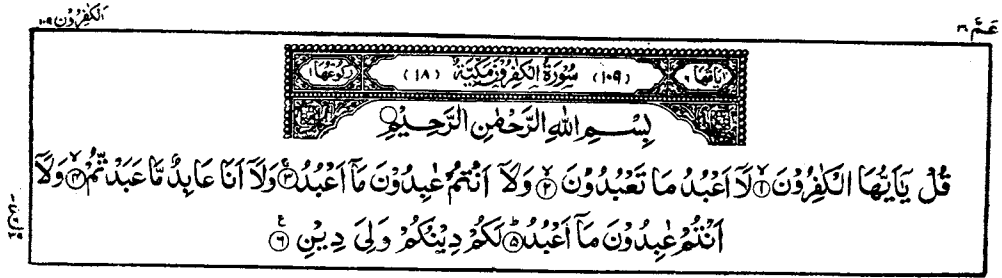 عَمَّ ٣٠
اَلْكٰفِرُوْن ١٠٩
اٰيَاتُهَا ٦
(١٠٩) سُوْرَةُ الْكٰفِرُوْنَ مَكِّيَّةٌ (١٨)
رُكُوْعُهَا ١
بِسْمِ اللهِ الرَّحْمٰنِ الرَّحِيْمِ
قُلْ يٰۤاَيُّهَا الْكٰفِرُوْنَ ۙ﴿١﴾ لَاۤ اَعْبُدُ مَا تَعْبُدُوْنَ ۙ﴿٢﴾ وَلَاۤ اَنْتُمْ عٰبِدُوْنَ مَاۤ اَعْبُدُ ۚ﴿٣﴾ وَلَاۤ اَنَا عَابِدٌ مَّا عَبَدْتُّمْ ۙ﴿٤﴾ وَلَاۤ
اَنْتُمْ عٰبِدُوْنَ مَاۤ اَعْبُدُ ؕ﴿٥﴾ لَكُمْ دِيْنُكُمْ وَلِيَ دِيْنِ ﴿٦﴾ ع